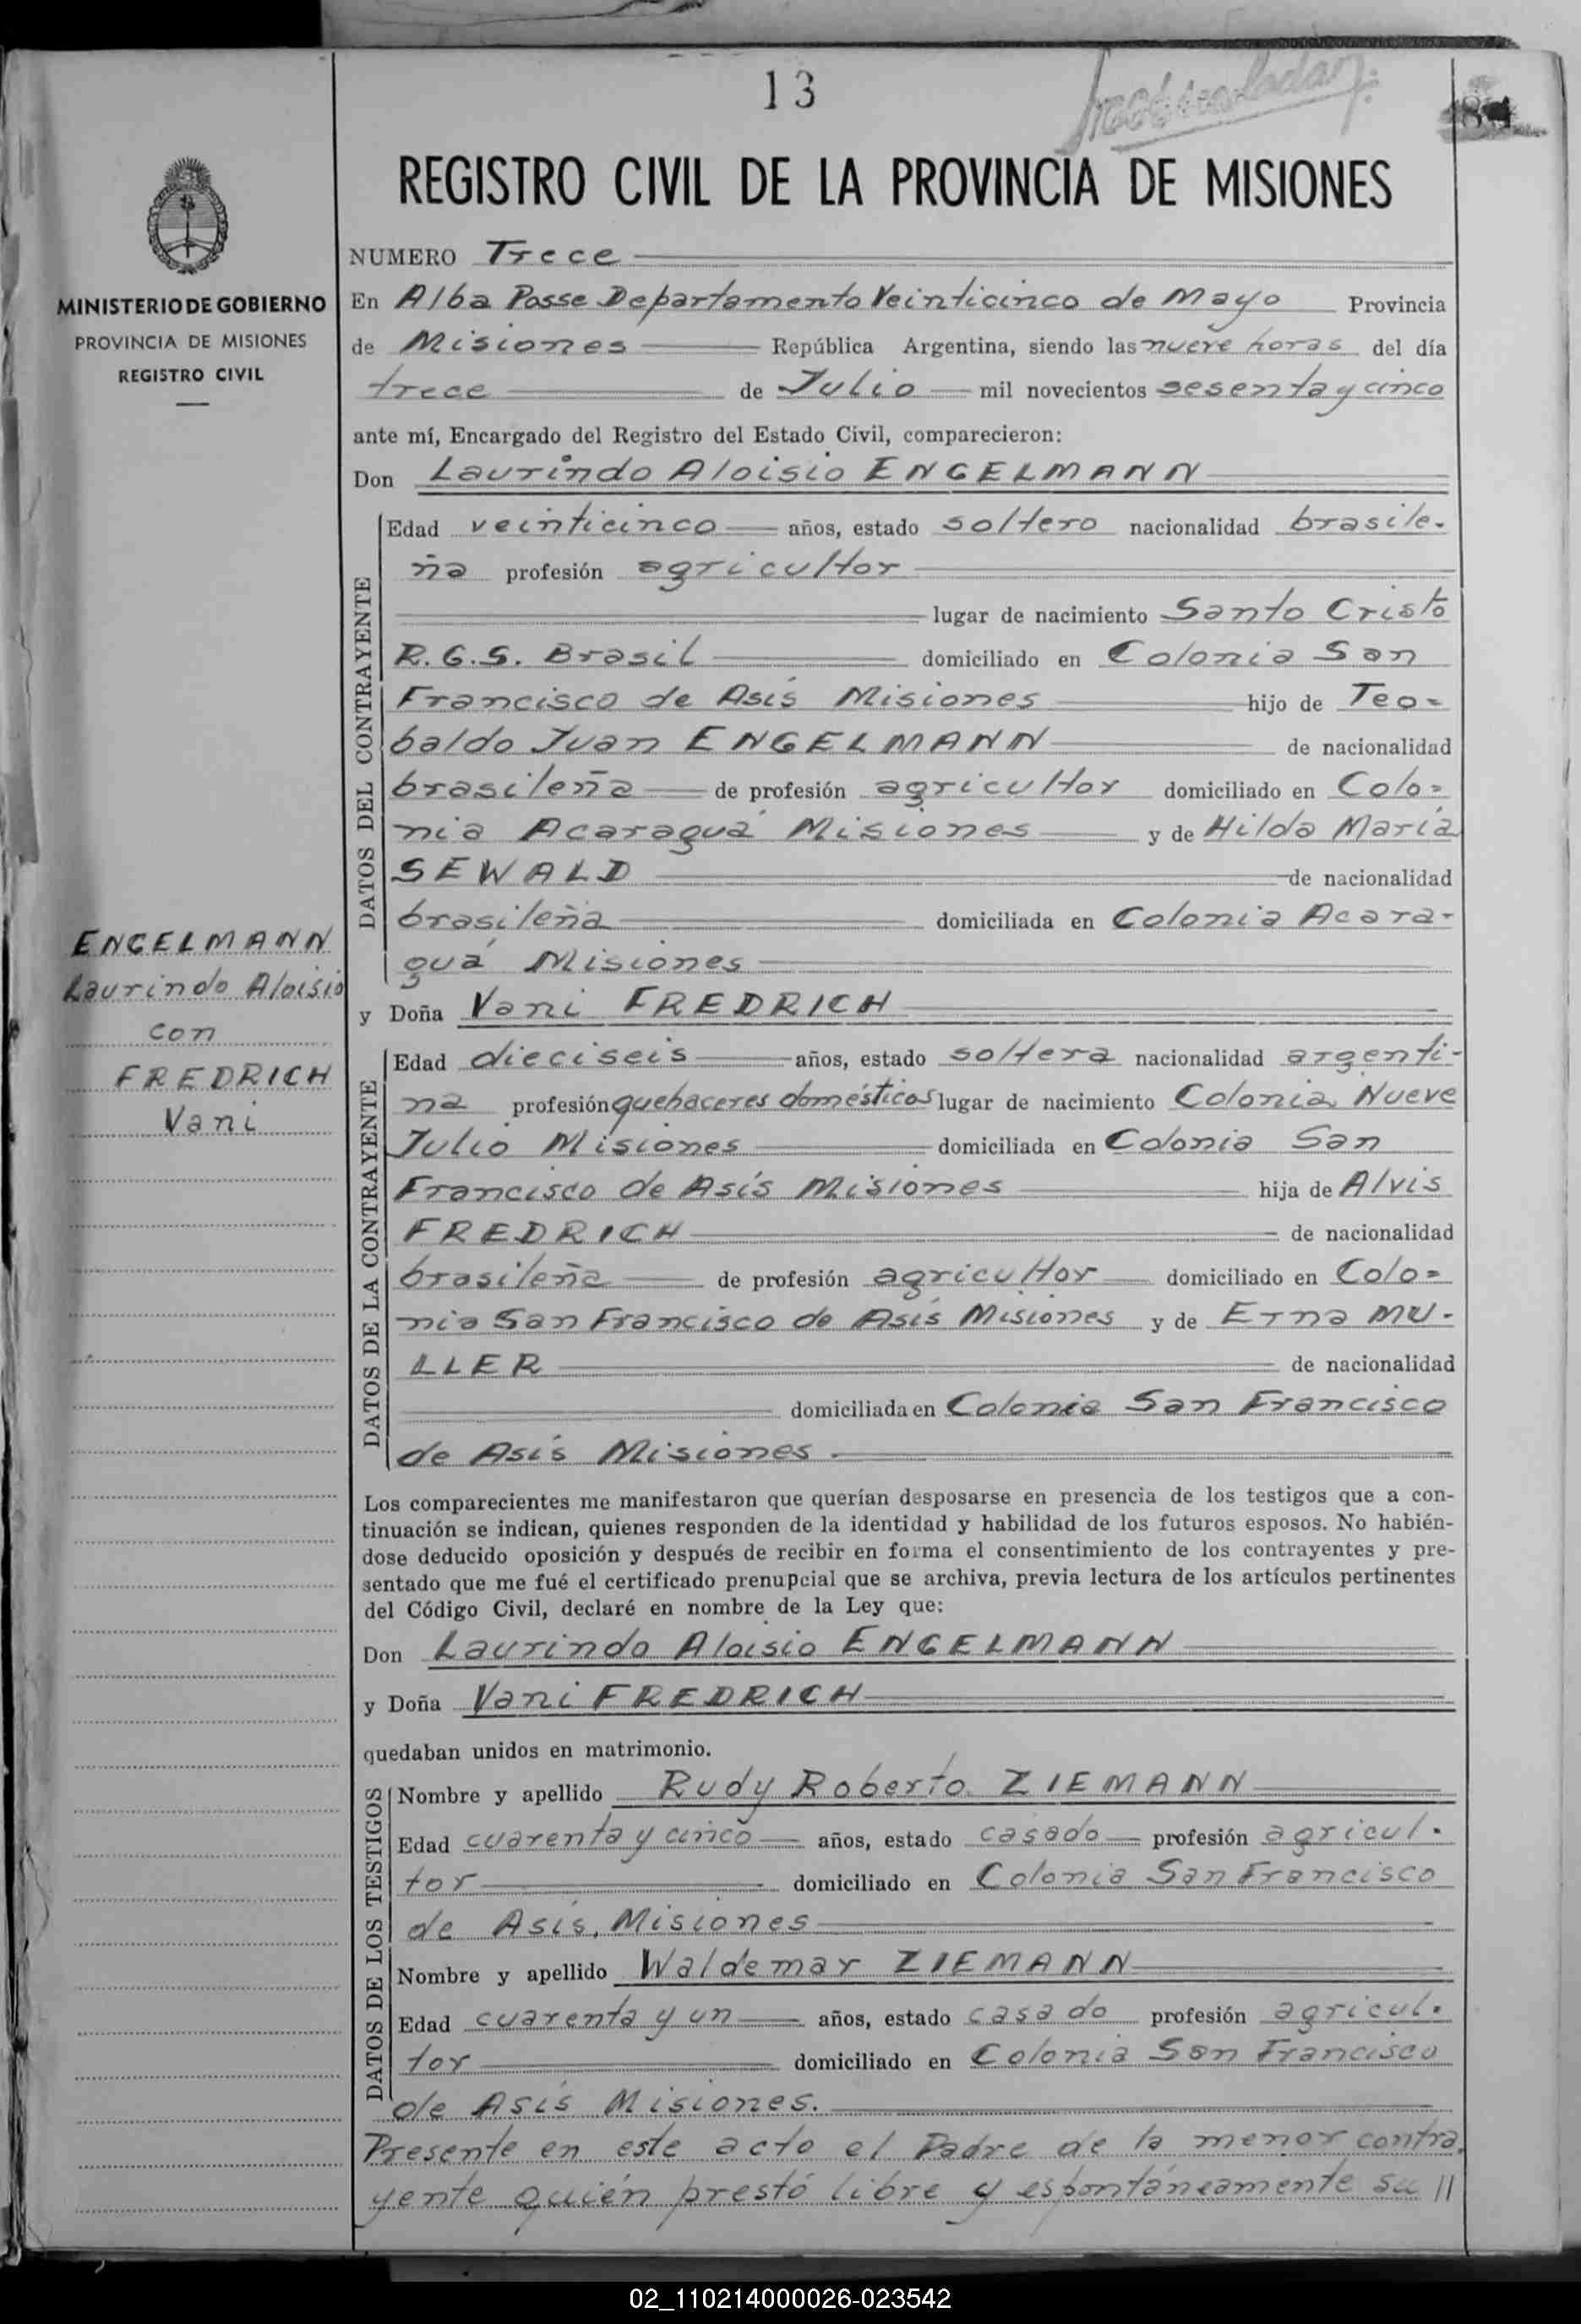 13
REGISTRO CIVIL DE LA PROVINCIA DE MISIONES
MINISTERIO DE GOBIERNO
PROVINCIA DE MISIONES
REGISTRO CIVIL
NUMERO Trece
En Alba Posse Departamento Veinticinco de Mayo Provincia
de Misiones República Argentina, siendo las nueve horas del día
trece de Julio mil novecientos sesenta y cinco
ante mí, Encargado del Registro del Estado Civil, comparecieron:
Don Laurindo Aloisio ENGELMANN
DATOS DEL CONTRAYENTE
Edad veinticinco años, estado soltero nacionalidad brasile-
ña profesión agricultor
lugar de nacimiento Santo Cristo
R.G.S. Brasil domiciliado en Colonia San
Francisco de Asís Misiones hijo de Teo-
baldo Juan ENGELMANN de nacionalidad
brasileña de profesión agricultor domiciliado en Colo-
nia Acaraguá Misiones y de Hilda María
SEWALD de nacionalidad
brasileña domiciliada en Colonia Acara-
guá Misiones
ENGELMANN
Laurindo Aloisio
con
FREDRICH
Vani
y Doña Vani FREDRICH
DATOS DE LA CONTRAYENTE
Edad dieciseis años, estado soltera nacionalidad argenti-
na profesión quehaceres domésticos lugar de nacimiento Colonia Nueve
Julio Misiones domiciliada en Colonia San
Francisco de Asís Misiones hija de Alvis
FREDRICH de nacionalidad
brasileña de profesión agricultor domiciliado en Colo-
nia San Francisco de Asís Misiones y de Erna MU-
LLER de nacionalidad
domiciliada en Colonia San Francisco
de Asís Misiones.
Los comparecientes me manifestaron que querían desposarse en presencia de los testigos que a con-
tinuación se indican, quienes responden de la identidad y habilidad de los futuros esposos. No habién-
dose deducido oposición y después de recibir en forma el consentimiento de los contrayentes y pre-
sentado que me fué el certificado prenupcial que se archiva, previa lectura de los artículos pertinentes
del Código Civil, declaré en nombre de la Ley que:
Don Laurindo Aloisio ENGELMANN
y Doña Vani FREDRICH
quedaban unidos en matrimonio.
DATOS DE LOS TESTIGOS
Nombre y apellido Rudy Roberto ZIEMANN
Edad cuarenta y cinco años, estado casado profesión agricul-
tor domiciliado en Colonia San Francisco
de Asís, Misiones
Nombre y apellido Waldemar ZIEMANN
Edad cuarenta y un años, estado casado profesión agricul-
tor domiciliado en Colonia San Francisco
de Asís Misiones.
Presente en este acto el Padre de la menor contra-
yente quién prestó libre y espontáneamente su //
02_110214000026-023542